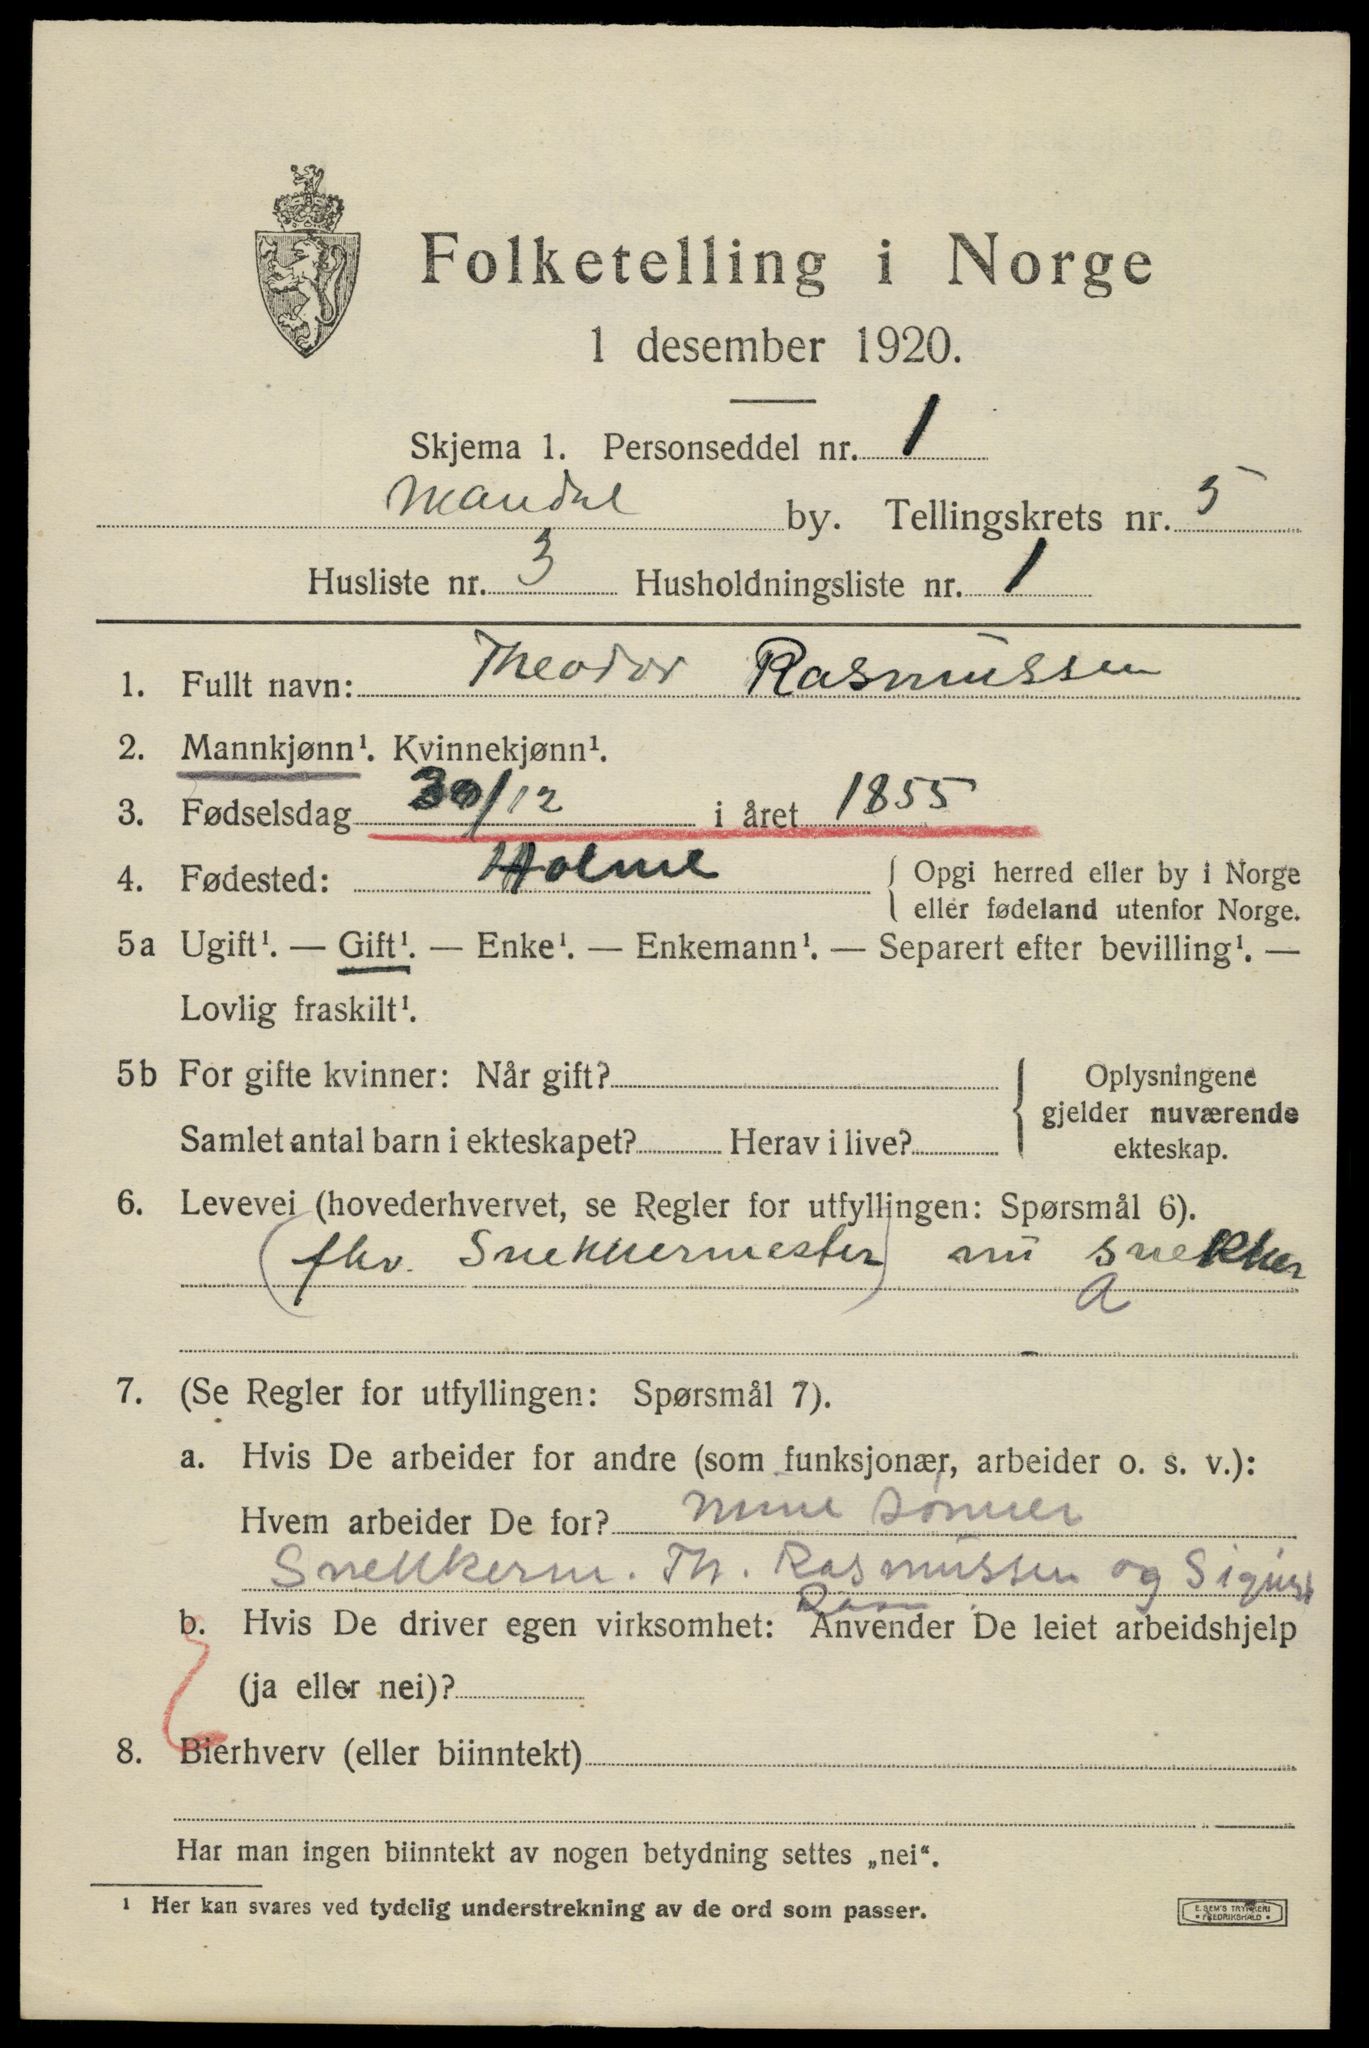 Folketelling i Norge
1 desember 1920.
Skjema 1. Personseddel nr. 1
Mandal by. Tellingskrets nr. 5
Husliste nr. 3 Husholdningsliste nr. 1
1. Fullt navn: Theodor Rasmussen
2. Mannkjønn¹. Kvinnekjønn¹.
3. Fødselsdag 30/12 i året 1855
4. Fødested: Holme { Opgi herred eller by i Norge
eller fødeland utenfor Norge.
5a Ugift¹. — Gift¹. — Enke¹. — Enkemann¹. — Separert efter bevilling¹. —
Lovlig fraskilt¹.
5b For gifte kvinner: Når gift? { Oplysningene
gjelder nuværende
Samlet antal barn i ekteskapet? Herav i live? ekteskap.
6. Levevei (hovederhvervet, se Regler for utfyllingen: Spørsmål 6).
(fhv. Snekkermester) nu snekker
A
7. (Se Regler for utfyllingen: Spørsmål 7).
a. Hvis De arbeider for andre (som funksjonær, arbeider o. s. v.):
Hvem arbeider De for? mine sønner
Snekkerm. Th. Rasmussen og Sigurd
Ras.
b. Hvis De driver egen virksomhet: Anvender De leiet arbeidshjelp
(ja eller nei)?
8. Bierhverv (eller biinntekt)
Har man ingen biinntekt av nogen betydning settes „nei“.
¹ Her kan svares ved tydelig understrekning av de ord som passer.
E. SEM'S TRYKKERI
• FREDRIKSHALD •